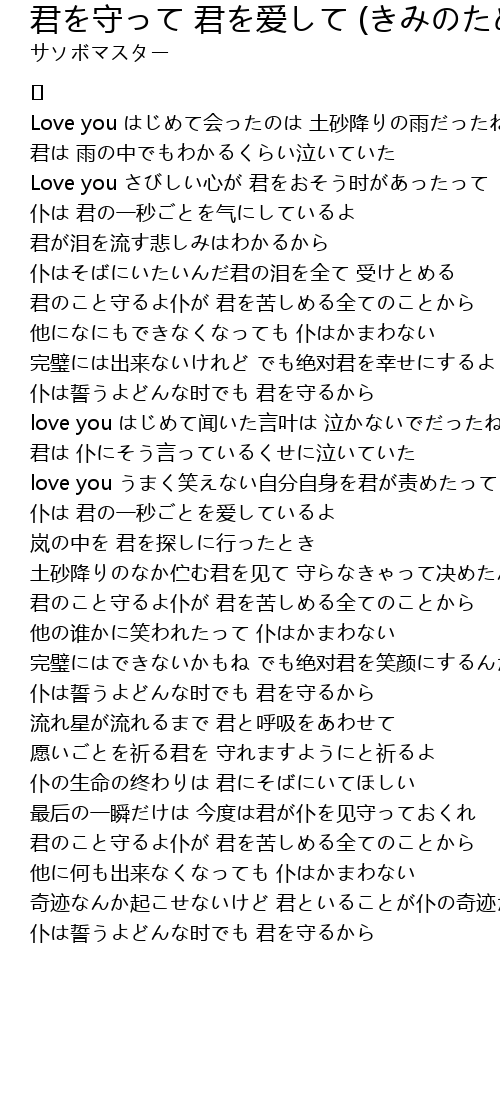 君を守って 君を爱して (きみのた
サソボマスター
[]
Love you はじめて会ったのは 土砂降りの雨だったね
君は 雨の中でもわかるくらい泣いていた
Love you さびしい心が 君をおそう时があったって
仆は 君の一秒ごとを气にしているよ
君が泪を流す悲しみはわかるから
仆はそばにいたいんだ君の泪を全て 受けとめる
君のこと守るよ仆が 君を苦しめる全てのことから
他になにもできなくなっても 仆はかまわない
完璧には出来ないけれど でも绝对君を幸せにするよ
仆は誓うよどんな时でも 君を守るから
love you はじめて闻いた言叶は 泣かないでだったね
君は 仆にそう言っているくせに泣いていた
love you うまく笑えない自分自身を君が责めたって
仆は 君の一秒ごとを爱しているよ
岚の中を 君を探しに行ったとき
土砂降りのなか伫む君を见て 守らなきゃって决めたん
君のこと守るよ仆が 君を苦しめる全てのことから
他の谁かに笑われたって 仆はかまわない
完璧にはできないかもね でも绝对君を笑颜にするんだ
仆は誓うよどんな时でも 君を守るから
流れ星が流れるまで 君と呼吸をあわせて
愿いごとを祈る君を 守れますようにと祈るよ
仆の生命の终わりは 君にそばにいてほしい
最后の一瞬だけは 今度は君が仆を见守っておくれ
君のこと守るよ仆が 君を苦しめる全てのことから
他に何も出来なくなっても 仆はかまわない
奇迹なんか起こせないけど 君といることが仆の奇迹
仆は誓うよどんな时でも 君を守るから